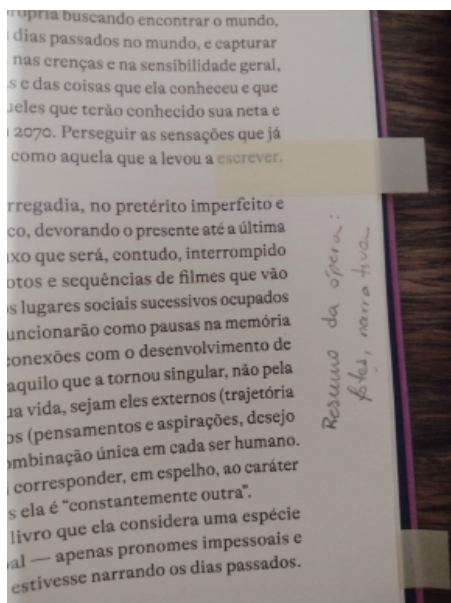 própria buscando encontrar o mundo,
dias passados no mundo, e capturar
nas crenças e na sensibilidade geral,
s e das coisas que ela conheceu e que
ueles que terão conhecido sua neta e
2070. Perseguir as sensações que já
como aquela que a levou a escrever.
rregadia, no pretérito imperfeito e
co, devorando o presente até a última
xo que será, contudo, interrompido
otos e sequências de filmes que vão
s lugares sociais sucessivos ocupados
uncionarão como pausas na memória
conexões com o desenvolvimento de
aquilo que a tornou singular, não pela
ua vida, sejam eles externos (trajetória
os (pensamentos e aspirações, desejo
ombinação única em cada ser humano.
corresponder, em espelho, ao caráter
s ela é “constantemente outra”.
livro que ela considera uma espécie
al — apenas pronomes impessoais e
estivesse narrando os dias passados.
Resumo da ópera:
fotos, narrativa